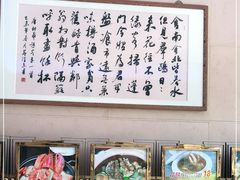 舍南舍北皆春水
但見群鷗日日
來花徑不曾
緣客掃蓬
門今始為君開
盤飧市遠無兼
味樽酒家貧只
舊醅肯與鄰
翁相對飲隔籬
呼取盡餘杯